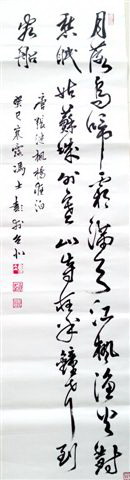 月落烏啼霜滿天江楓漁火對
愁眠姑蘇城外寒山寺夜半鐘聲到
客船
唐張繼楓橋夜泊
癸巳寒露馮士彭